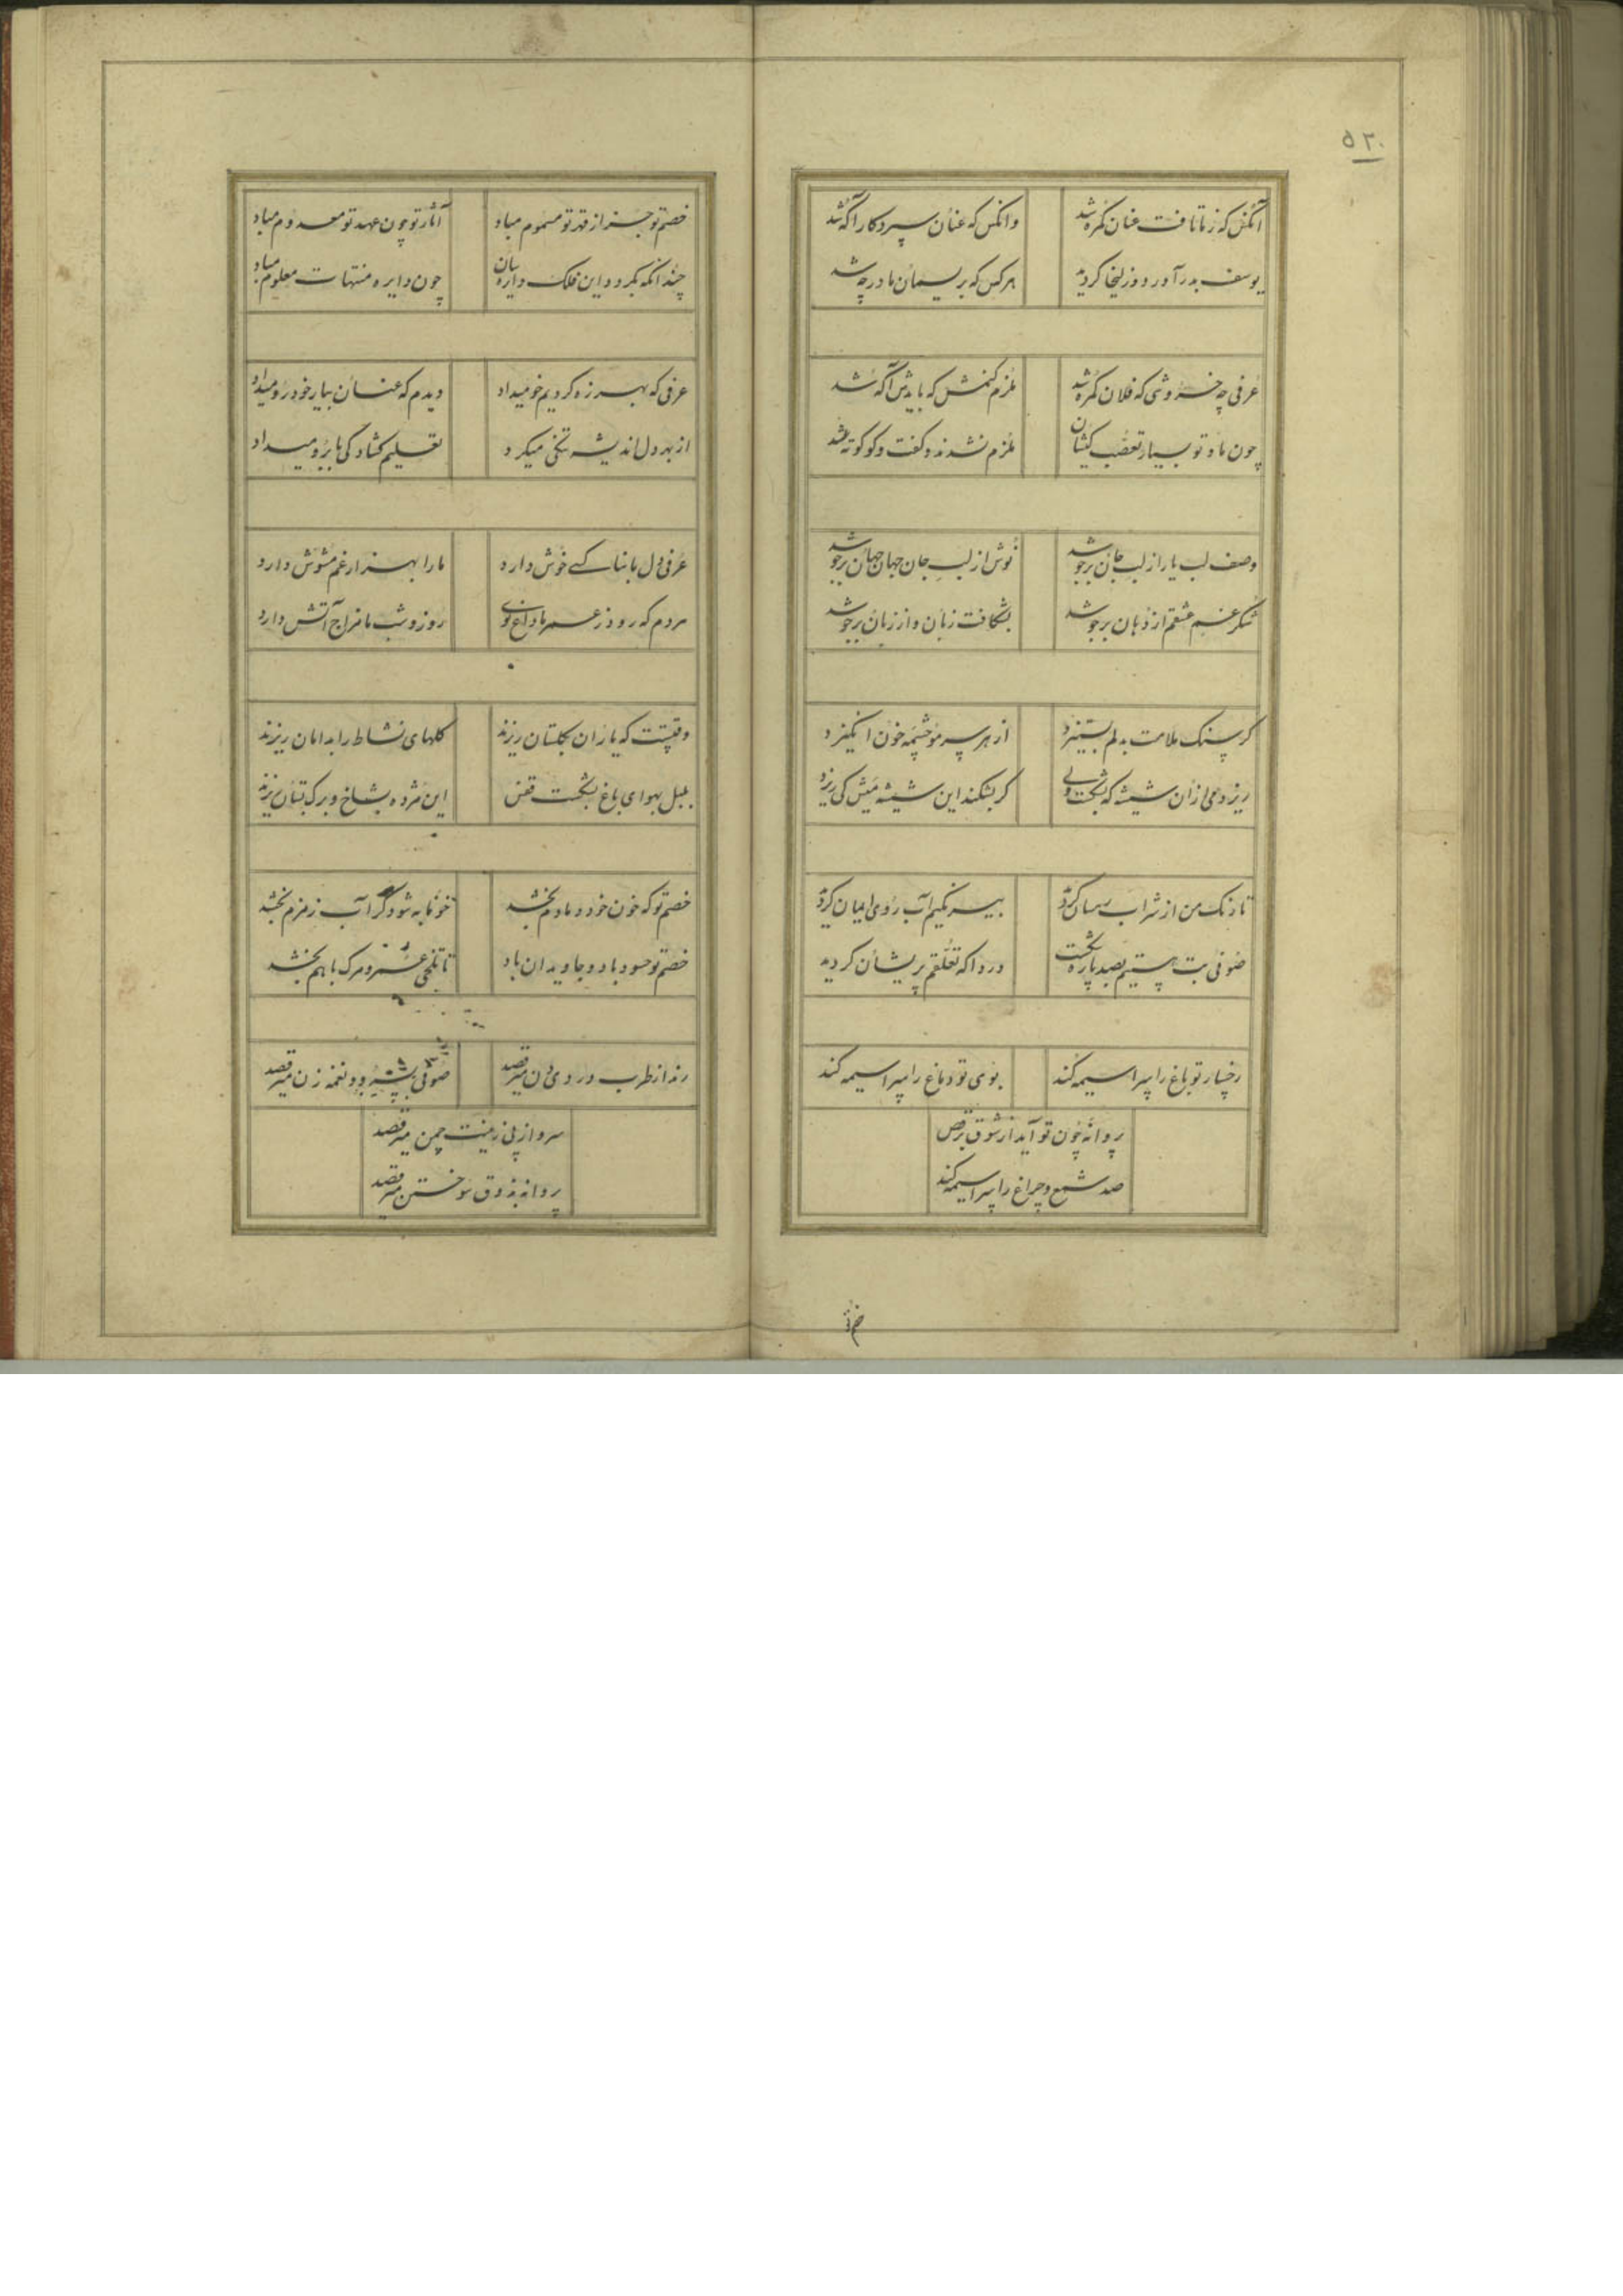 ۵۲۰
آنکس که ز ما تافت عنان گمره شد
وانکس که عنان سپرد کار آگه شد
یوسف بدر آورد و زلیخا گردید
هر کس که بریسمان ما در چه شد
عرفی چه خروشی که فلان گمره شد
ملزم کنمش که بایدش آگه شد
چون ما و تو بسیار تعصب کیشان
ملزم نشدند و گفت و گو کوته شد
وصف لب یار از لب جان برجوشد
نوش از لب جان جهان جهان برجوشد
شکر غم عشقم از دهان برجوشد
بشکافت زبان و از زبان برجوشد
گر سنگ ملامت بدلم بستیزد
از هر سر مو چشمه خون انگیزد
ریزد می از ان شیشه که بشکست ولی
گر بشکند این شیشه میش کی ریزد
تا رنگ من از شراب گرد
بیرنگیم آب روی ایمان گردید
صوفی بت هستیم بصد پاره شکست
دردا که تعلقم پریشان گردید
رخسار تو باغ را سراسیمه کند
بوی تو دماغ را سراسیمه کند
پروانه چون تو آید از شوق برقص
صد شمع و چراغ را سراسیمه کند
خصم تو
خصم تو جز از قهر تو مسموم مباد
آثار تو چون عهد تو معدوم مباد
چندانکه بگردد این فلک دایره سان
چون دایره منتهات معلوم مباد
عرفی که بهرزه گردیم خو میداد
دیدم که عنان بیار خود رو میداد
از بهر دل اندیشه تلخی میکرد
تعلیم گشادگی بابرو میداد
عرفی دل ما نه کسی خوش دارد
ما را بهزار غم مشوش دارد
مردم که رود ز عمر ما داغ نوی
روز و شب ما مزاج آتش دارد
وقتیست که یاران بگلستان ریزند
گلهای نشاط را بدامان ریزند
بلبل بهوای باغ بشکست قفس
این مژده بشاخ و برگ بستان ریزند
خصم تو که خون خود دمادم بخشد
خونابه شود گر آب زمزم بخشد
خصم تو حسود باد و جاویدان باد
تا تلخی عمر و مرگ با هم بخشد
رند از طرب دردی دن میرقصد
صوفی بسرود و نغمه زن میرقصد
سرو از پی زینت چمن میرقصد
پروانه بذوق سوختن میرقصد